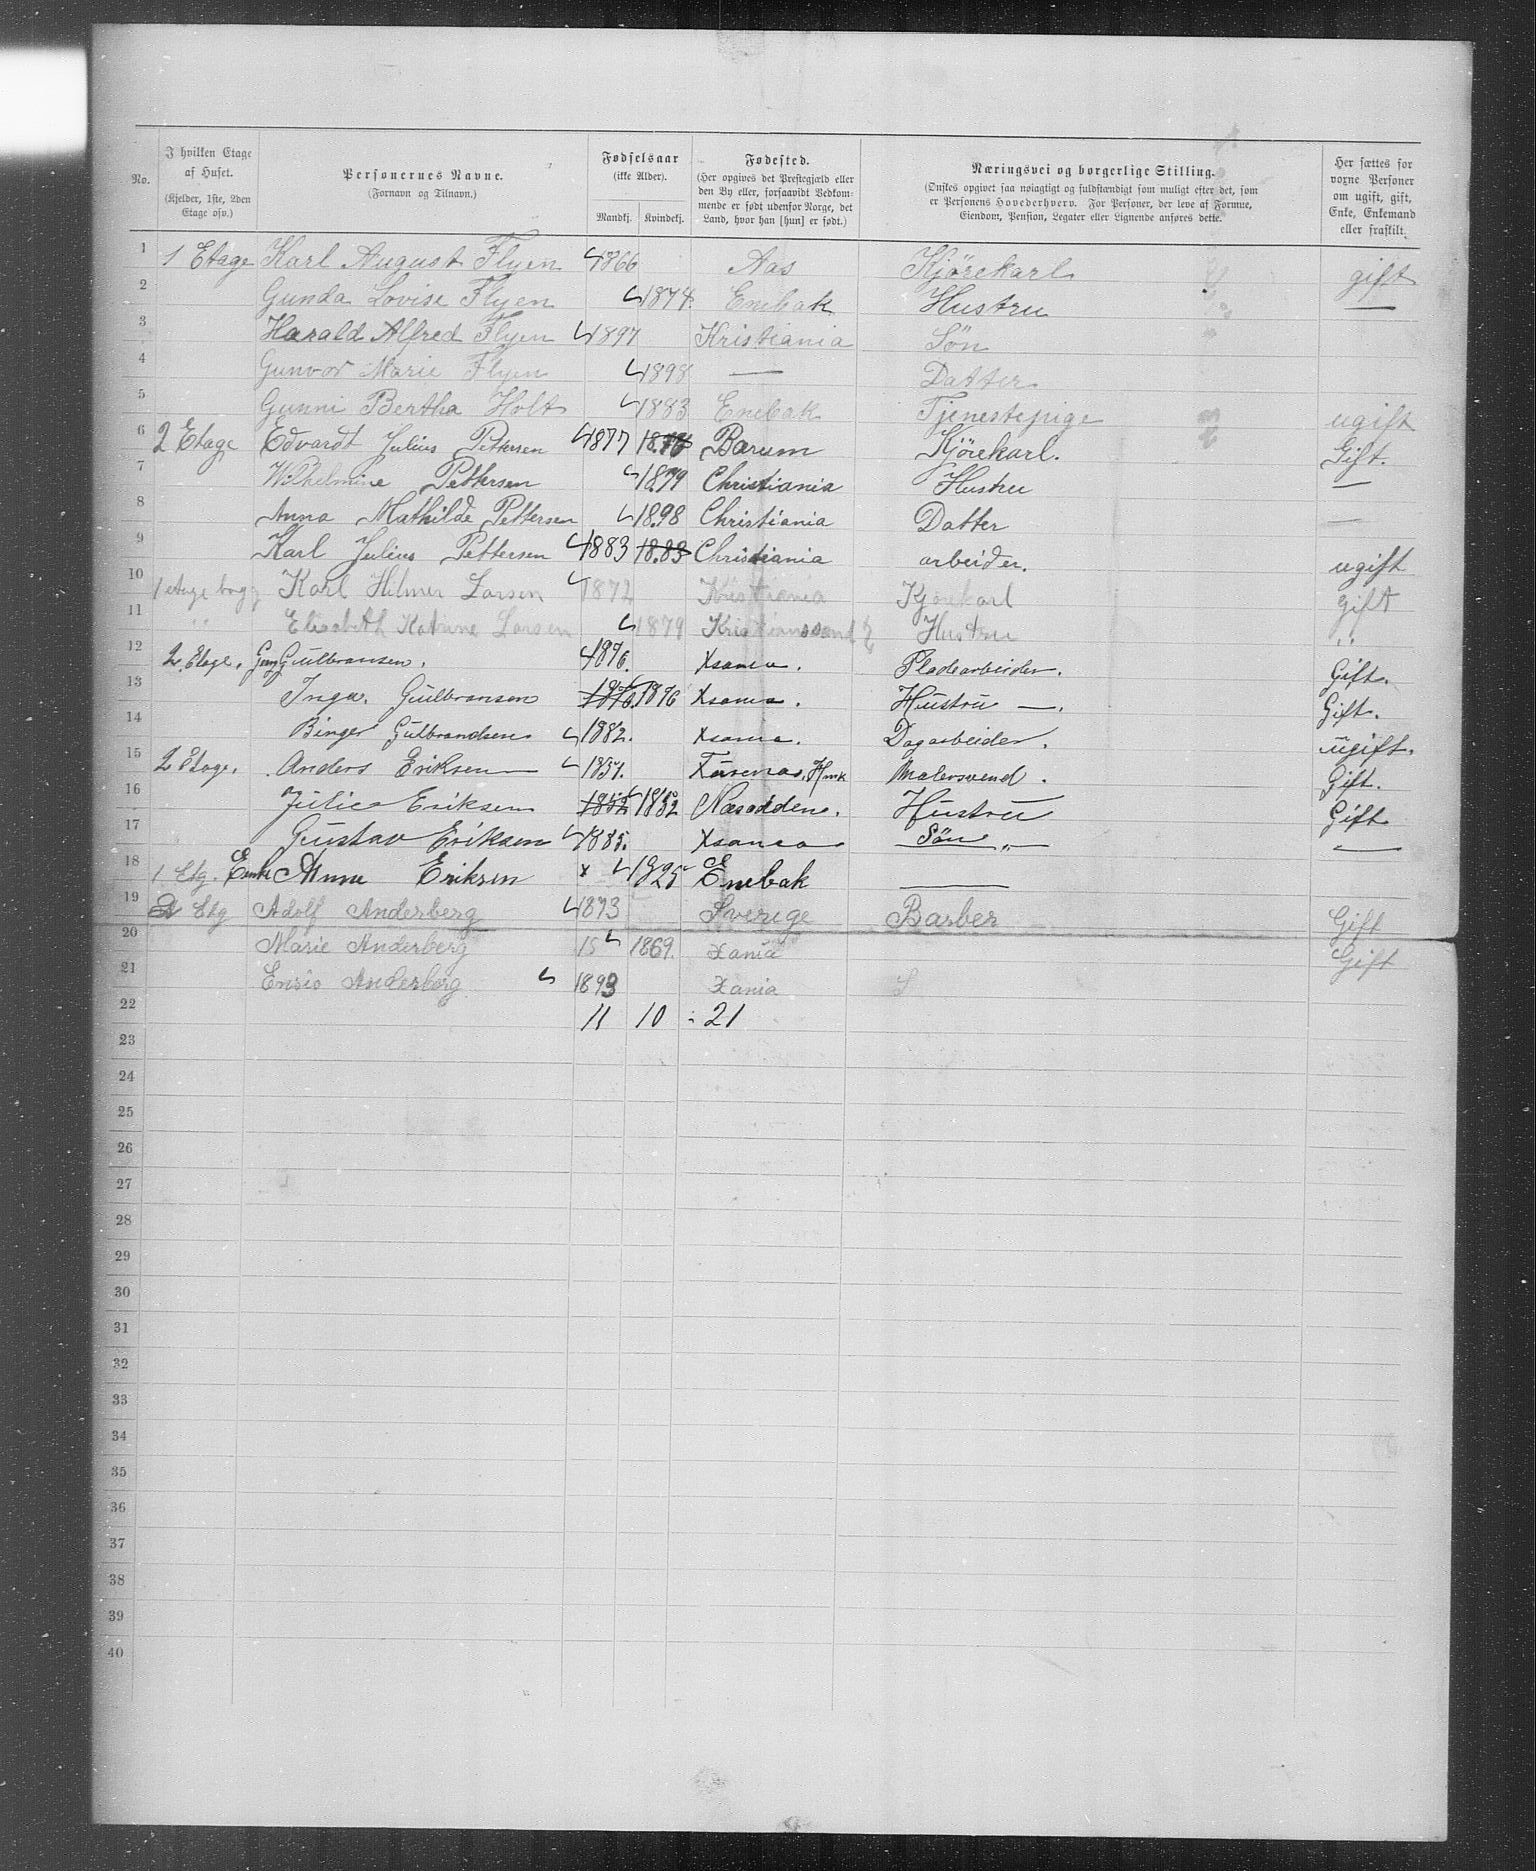 No.
I hvilken Etage af Huset.
(Kjelder, 1ste, 2den Etage osv.)
Personernes Navne.
(Fornavn og Tilnavn.)
Fødselsaar
(ikke Alder).
Mandkj. Kvindekj.
Fødested.
(Her opgives det Prestegjæld eller den By eller, forsaavidt Vedkommende er født udenfor Norge, det Land, hvor han [hun] er født.)
Næringsvei og borgerlige Stilling.
(Ønskes opgivet saa nøiagtigt og fuldstændigt som muligt efter det, som er Personens Hovederhverv. For Personer, der leve af Formue, Eiendom, Pension, Legater eller Lignende anføres dette.
Her sættes for voxne Personer om ugift, gift, Enke, Enkemand eller fraskilt.
1 1 Etage Karl August Flyen 1866 Aas Kjörekarl gift
2 Gunda Lovise Flyen 1874 Enebak Hustru —
3 Harald Alfred Flyen 1897 Kristiania Sön
4 Gunvor Marie Flyen 1898 — Datter
5 Gunni Bertha Holt 1883 Enebak Tjenestepige ugift
6 2 Etage Edvardt Julius Pettersen 1877 Barum Kjörekarl. Gift.
7 Wilhelmine Pettersen 1879 Christiania Hustru —
8 Anna Mathilde Pettersen 1898 Christiania Datter —
9 Karl Julius Pettersen 1883 1883 Christiania arbeider. ugift
10 1 etage Karl Hilmer Larsen 1872 Kristiania Kjörekarl Gift
11 " Elisabeth Katrine Larsen 1879 Kristianssand Hustru "
12 2 Etage. Gulbransen. 1876. Xsania. Pladearbeider. Gift.
13 Inga. Gulbransen 1876 1876 Xsania. Hustru —. Gift.
14 Birger Gulbrandsen 1882. Xsania. Dagarbeider. ugift.
15 2 Etage. Anders Eriksen 1857. Malersvend. Gift.
16 Julie Eriksen 1852 1852 Næsodden. Hustru Gift
17 Gustav Eriksen 1885. Xsania Sön " —
18 1 Etg. Enke Anne Eriksen x 1825 Enebak —
19 2 Etg Adolf Anderberg 1873 Sverige Barber Gift
20 Marie Anderberg 18 1869. Xania Gift
21 Anderberg 1893 Xania S
22 11 10 : 21
23
24
25
26
27
28
29
30
31
32
33
34
35
36
37
38
39
40